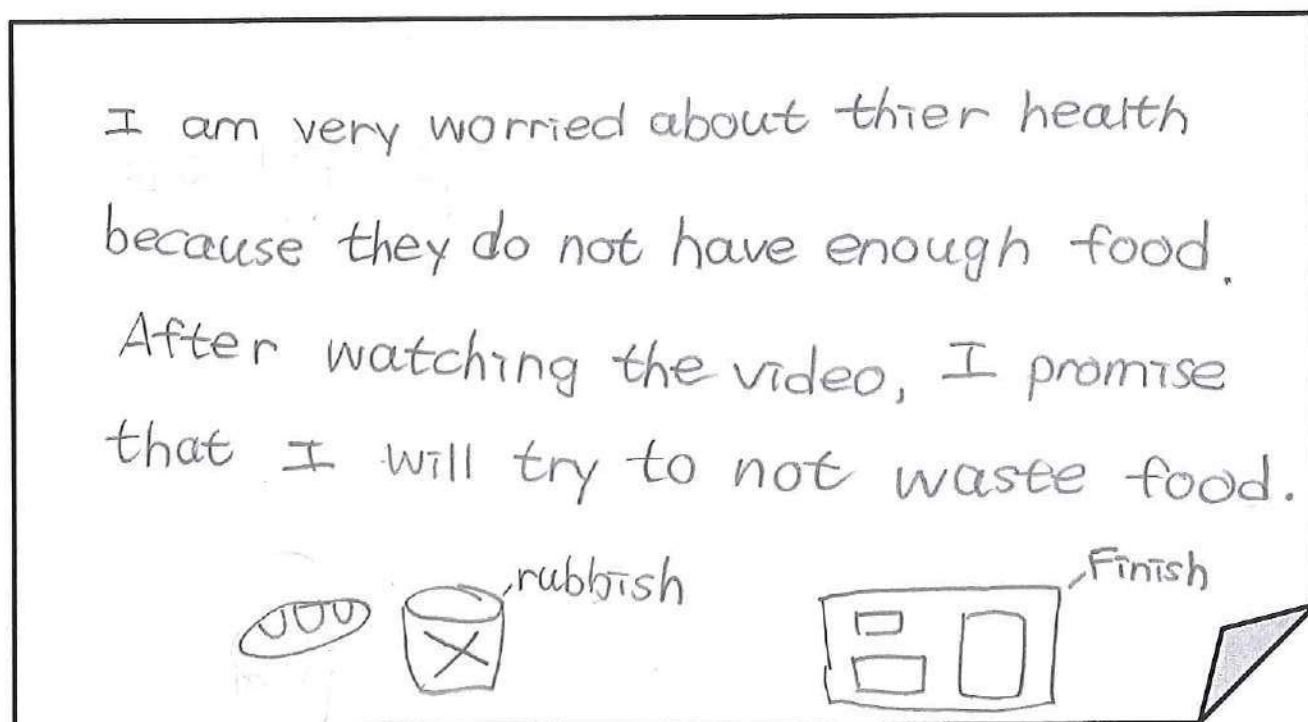 I am very worried about thier health
because they do not have enough food.
After watching the video, I promise
that I will try to not waste food.
rubbish
Finish